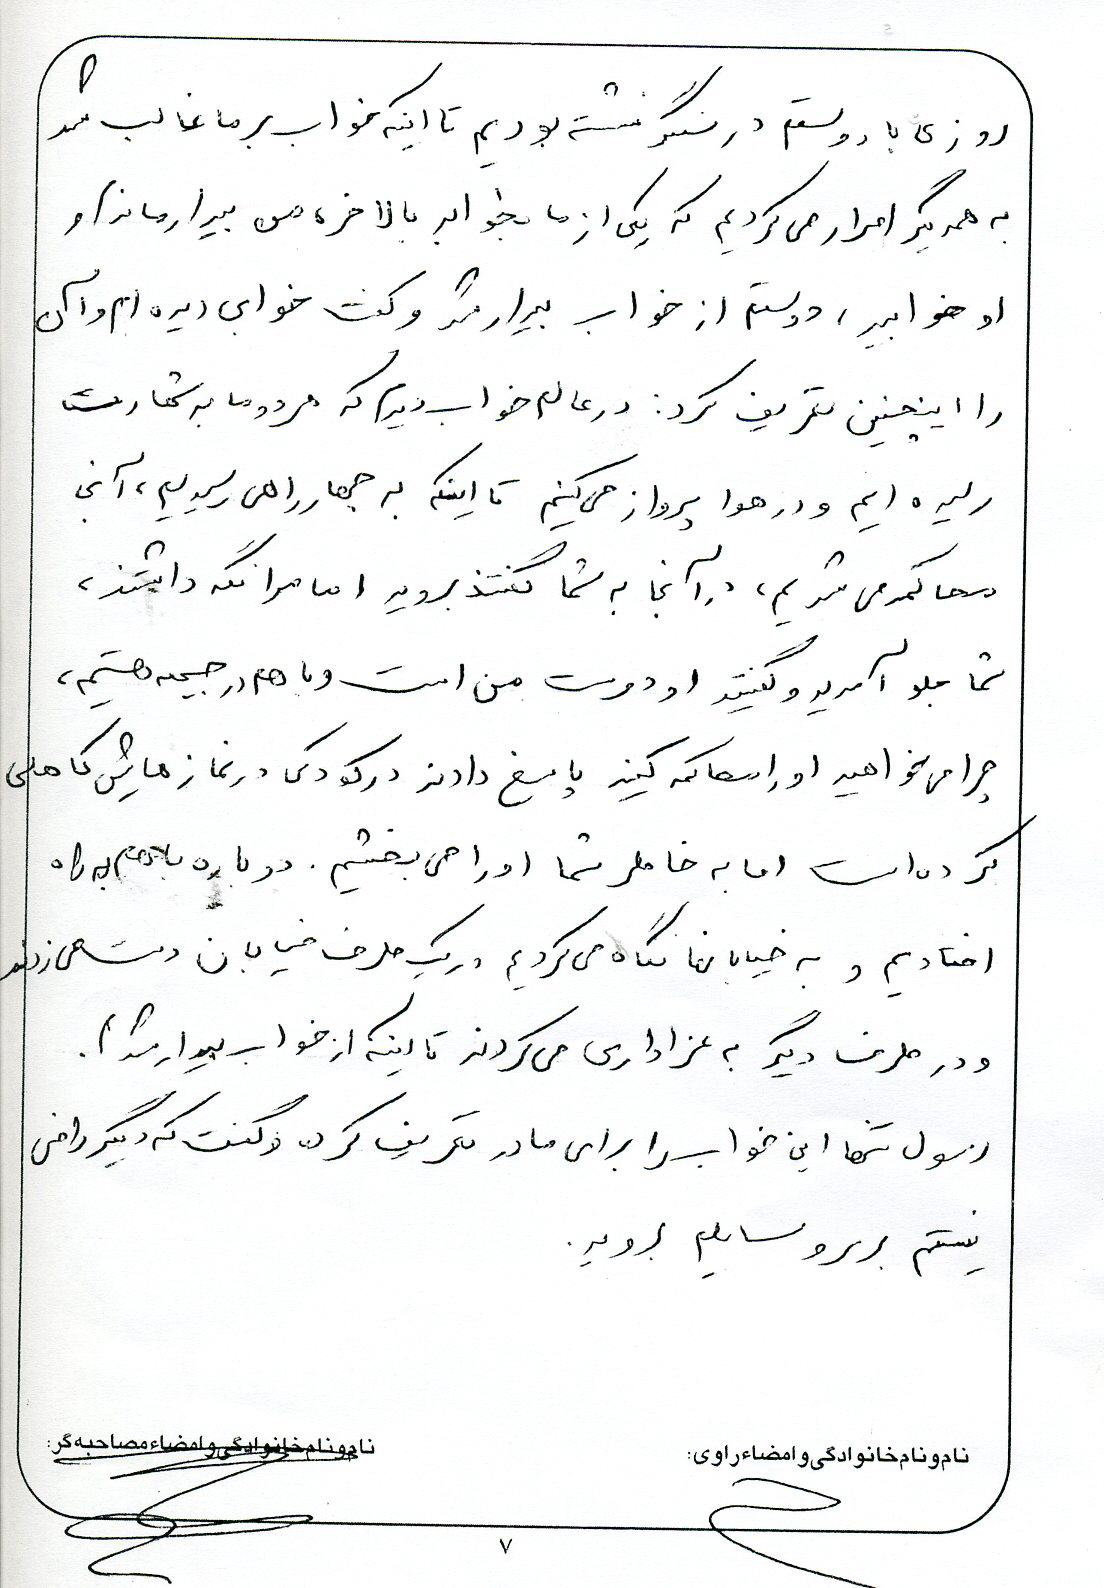 روزی با دوستم در سنگر نشسته بودیم تا اینکه خواب بر ما غالب شد
به همدیگر اصرار می کردیم که یکی از ما بخوابد بالاخره من بیدار ماندم و
او خوابید، دوستم از خواب بیدار شد و گفت خوابی دیده ام و آن
را اینچنین تعریف کرد: در عالم خواب دیدم که هر دو ما به شهادت
رسیده ایم و در هوا پرواز می کنیم تا اینکه به چهارراهی رسیدیم، آنجا
محاکمه می شدیم، در آنجا به شما گفتند بروید اما مرا نگه داشتند،
شما جلو آمدید و گفتید او دوست من است و با هم در جبهه هستیم،
چرا می خواهید او را محاکمه کنید پاسخ دادند در کودکی در نمازهایش کاهلی
کرده است اما به خاطر شما او را می بخشیم. دوباره با هم به راه
افتادیم و به خیابانها نگاه می کردیم در یک طرف خیابان دست می زدند
و در طرف دیگر به عزاداری می کردند تا اینکه از خواب بیدار شدم.
رسول تنها این خواب را برای مادر تعریف کرد و گفت که دیگر راضی
نیستم بر سر وسایلم بروید.
نام و نام خانوادگی و امضاء راوی:
نام و نام خانوادگی و امضاء مصاحبه گر:
۷